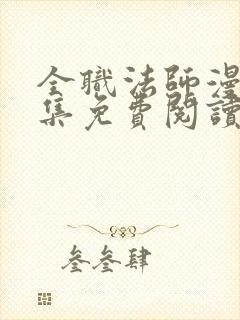 全職法師漫
集免費閱讀
叄叄肆